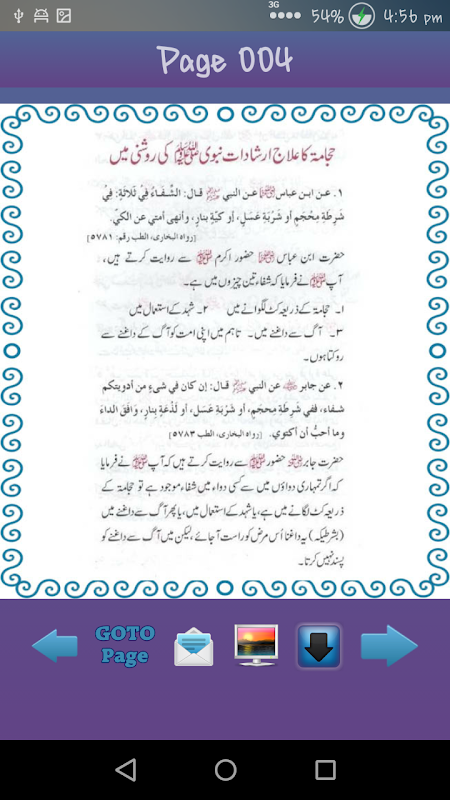 3G
54%
4:56 pm
Page 004
حجامۃ کا علاج ارشادات نبوی ﷺ کی روشنی میں
۱. عن ابن عباس ؓ عن النبي ﷺ قال: الشِّفَاءُ فِيْ ثَلاثَةٍ: فِيْ
شَرطَةِ مِحْجَمٍ أو شَرْبَةِ عَسَلٍ، أو كَيَّةٍ بنارٍ، وأنهى أمتي عن الكَيِّ.
[رواه البخاری، الطب رقم: ٥٧٨١]
حضرت ابن عباس ؓ حضور اکرم ﷺ سے روایت کرتے ہیں،
آپ ﷺ نے فرمایا کہ شفاء تین چیزوں میں ہے۔
۱۔ حجامۃ کے ذریعہ کٹ لگوانے میں ۲۔ شہد کے استعمال میں
۳۔ آگ سے داغنے میں۔ تاہم میں اپنی امت کو آگ کے داغنے سے
روکتا ہوں۔
۲. عن جابر ؓ عن النبي ﷺ قال: إن كان في شيءٍ من أدويتكم
شفاء، ففي شَرطَةِ مِحجَمٍ، أو شَرْبَةِ عَسَلٍ، أو لَذْعَةٍ بِنارٍ، وَافَقَ الداءَ
وما أحبُّ أن أكتوي. [رواه البخاری، الطب ٥٧٨٣]
حضرت جابر ؓ حضور ﷺ سے روایت کرتے ہیں کہ آپ ﷺ نے فرمایا
کہ اگر تمہاری دواؤں میں سے کسی دواء میں شفاء موجود ہے تو حجامۃ کے
ذریعہ کٹ لگانے میں ہے، یا شہد کے استعمال میں، یا پھر آگ سے داغنے میں
(بشرطیکہ) یہ داغنا اُس مرض کو راست آجائے، لیکن میں آگ سے داغنے کو
پسند نہیں کرتا۔
GOTO
Page